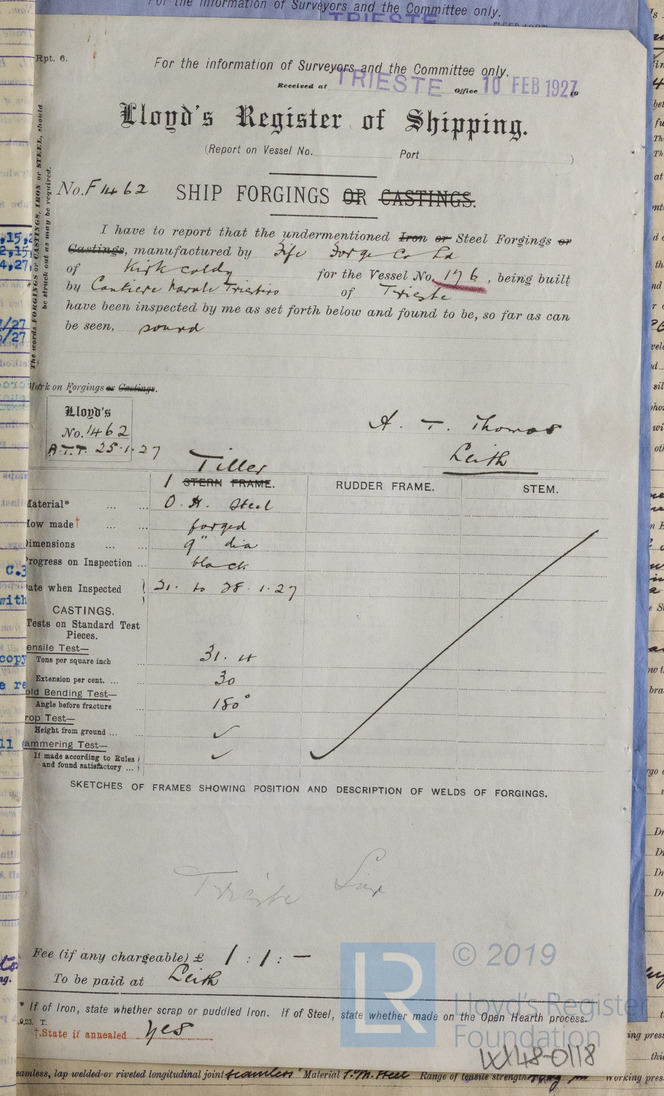 For the information of Surveyors and the Committee only.
TRIESTE
Rpt. 6.
For the information of Surveyors and the Committee only.
Received at TRIESTE Office 10 FEB 1927
Lloyd's Register of Shipping.
(Report on Vessel No. Port )
No. F 1462 SHIP FORGINGS OR CASTINGS.
The words FORGINGS or CASTINGS, IRON or STEEL, should
be struck out as may be required.
I have to report that the undermentioned Iron or Steel Forgings or
Castings, manufactured by Fife Forge Co Ld
of Kirkcaldy for the Vessel No. 176, being built
by Cantiere Navale Triestino of Trieste
have been inspected by me as set forth below and found to be, so far as can
be seen, sound
Mark on Forgings or Castings.
Lloyd's
No. 1462
A.T.T. 25.1.27
A. T. Thomas
Leith
Tiller
1 STERN FRAME. RUDDER FRAME. STEM.
Material* O.H. Steel
How made† forged
Dimensions 9" dia
Progress on Inspection black
Date when Inspected 21. to 28.1.27
CASTINGS.
Tests on Standard Test
Pieces.
Tensile Test—
Tons per square inch 31.4
Extension per cent. 30
Cold Bending Test—
Angle before fracture 180°
Drop Test—
Height from ground ✓
Hammering Test—
If made according to Rules
and found satisfactory ✓ ✓
SKETCHES OF FRAMES SHOWING POSITION AND DESCRIPTION OF WELDS OF FORGINGS.
Trieste
Fee (if any chargeable) £ 1 : 1 : —
To be paid at Leith
* If of Iron, state whether scrap or puddled Iron. If of Steel, state whether made on the Open Hearth process.
†.State if annealed yes
© 2019
LR
Lloyd's Register
Foundation
W1148-0118
seamless, lap welded or riveted longitudinal joint seamless Material S.M. Steel Range of tensile strength